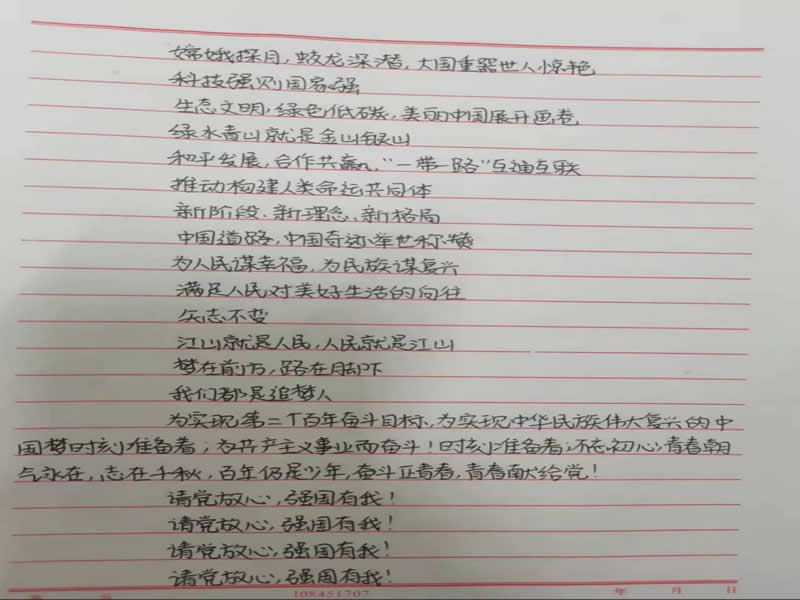 嫦娥探月,蛟龙深潜,大国重器世人惊艳
科技强则国家强
生态文明,绿色低碳,美丽中国展开画卷
绿水青山就是金山银山
和平发展,合作共赢,“一带一路”互通互联
推动构建人类命运共同体
新阶段、新理念、新格局
中国道路,中国奇迹举世称赞
为人民谋幸福,为民族谋复兴
满足人民对美好生活的向往
矢志不变
江山就是人民,人民就是江山
梦在前方,路在脚下
我们都是追梦人
为实现第二个百年奋斗目标,为实现中华民族伟大复兴的中
国梦时刻准备着;为共产主义事业而奋斗!时刻准备着;不忘初心,青春朝
气永在,志在千秋,百年仍是少年,奋斗正青春,青春献给党!
请党放心,强国有我!
请党放心,强国有我!
请党放心,强国有我!
请党放心,强国有我!
108451707 年 月 日